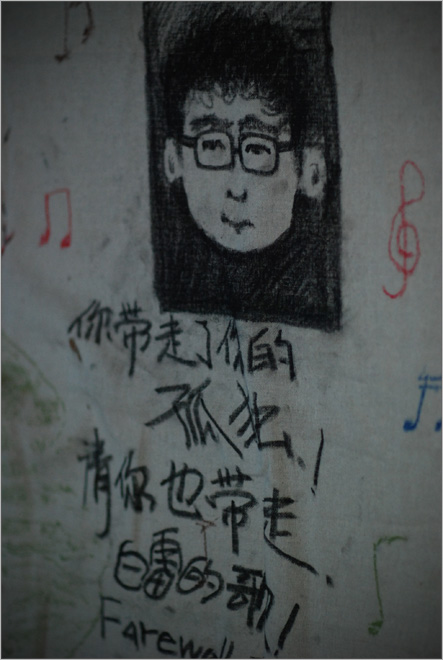 你带走了你的
孤独!
请你也带走,
白雷的歌!
Farewell